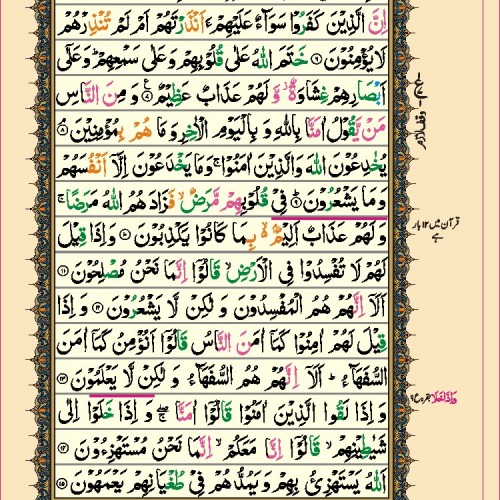 اِنَّ الَّذِيْنَ كَفَرُوْا سَوَآءٌ عَلَيْهِمْ ءَاَنْذَرْتَهُمْ اَمْ لَمْ تُنْذِرْهُمْ
لَا يُؤْمِنُوْنَ ۶ خَتَمَ اللّٰهُ عَلٰى قُلُوْبِهِمْ وَعَلٰى سَمْعِهِمْ ؕ وَعَلٰۤى
اَبْصَارِهِمْ غِشَاوَةٌ ؗ وَّ لَهُمْ عَذَابٌ عَظِيْمٌ ۷ وَ مِنَ النَّاسِ
مَنْ يَّقُوْلُ اٰمَنَّا بِاللّٰهِ وَ بِالْيَوْمِ الْاٰخِرِ وَ مَا هُمْ بِمُؤْمِنِيْنَ ۸
يُخٰدِعُوْنَ اللّٰهَ وَالَّذِيْنَ اٰمَنُوْا ۚ وَمَا يَخْدَعُوْنَ اِلَّاۤ اَنْفُسَهُمْ
وَ مَا يَشْعُرُوْنَ ۹ فِيْ قُلُوْبِهِمْ مَّرَضٌ ۙ فَزَادَ هُمُ اللّٰهُ مَرَضًا ۚ
وَ لَهُمْ عَذَابٌ اَلِيْمٌۢ ۙ بِمَا كَانُوْا يَكْذِبُوْنَ ۱۰ وَ اِذَا قِيْلَ
قرآن میں ۱۲ بار ہے
لَهُمْ لَا تُفْسِدُوْا فِي الْاَرْضِ ۙ قَالُوْۤا اِنَّمَا نَحْنُ مُصْلِحُوْنَ ۱۱
اَلَاۤ اِنَّهُمْ هُمُ الْمُفْسِدُوْنَ وَ لٰكِنْ لَّا يَشْعُرُوْنَ ۱۲ وَ اِذَا
قِيْلَ لَهُمْ اٰمِنُوْا كَمَاۤ اٰمَنَ النَّاسُ قَالُوْۤا اَنُؤْمِنُ كَمَاۤ اٰمَنَ
السُّفَهَآءُ ؕ اَلَاۤ اِنَّهُمْ هُمُ السُّفَهَآءُ وَ لٰكِنْ لَّا يَعْلَمُوْنَ ۱۳
وَ اِذَا لَقُوا الَّذِيْنَ اٰمَنُوْا قَالُوْۤا اٰمَنَّا ۖۚ وَ اِذَا خَلَوْا اِلٰى
شَيٰطِيْنِهِمْ ۙ قَالُوْۤا اِنَّا مَعَكُمْ ۙ اِنَّمَا نَحْنُ مُسْتَهْزِءُوْنَ ۱۴
اَللّٰهُ يَسْتَهْزِئُ بِهِمْ وَ يَمُدُّهُمْ فِيْ طُغْيَانِهِمْ يَعْمَهُوْنَ ۱۵